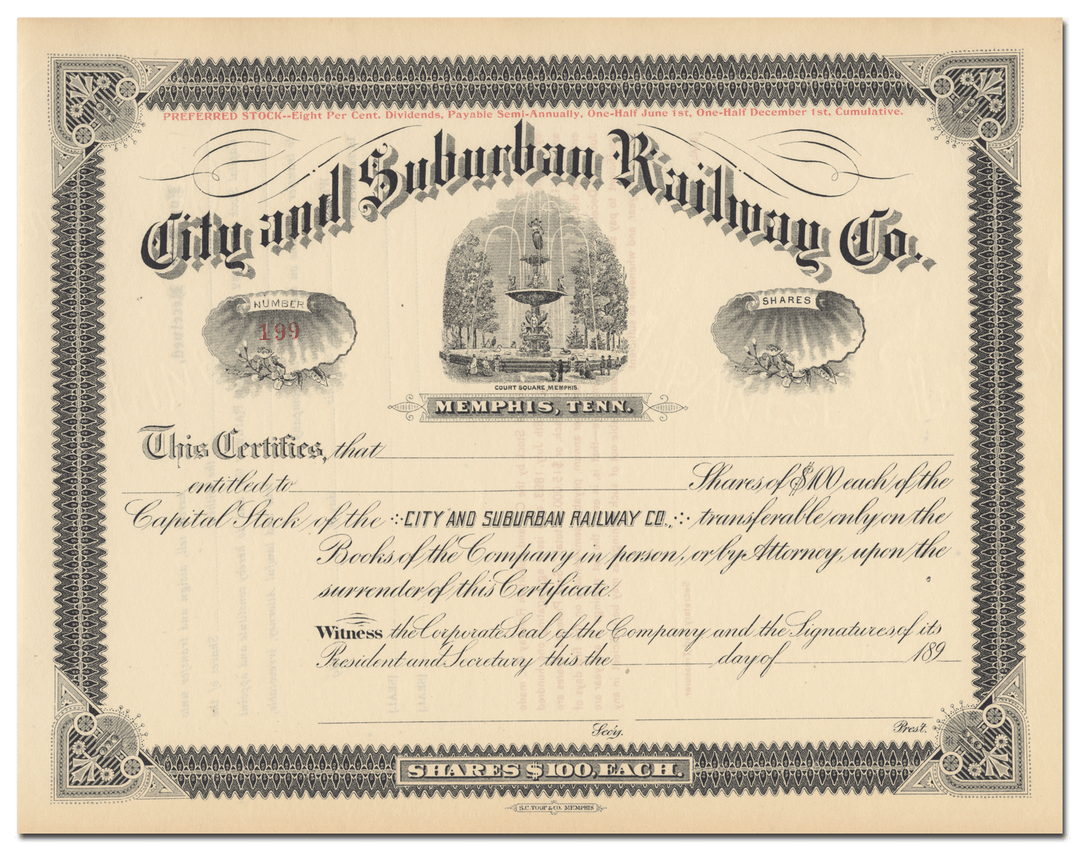 PREFERRED STOCK--Eight Per Cent. Dividends, Payable Semi-Annually, One-Half June 1st, One-Half December 1st, Cumulative.
City and Suburban Railway Co.
NUMBER
199
SHARES
COURT SQUARE, MEMPHIS.
MEMPHIS, TENN.
This Certifies, that
entitled to Shares of $100 each of the
Capital Stock of the CITY AND SUBURBAN RAILWAY CO., transferable only on the
Books of the Company in person, or by Attorney, upon the
surrender of this Certificate.
Witness the Corporate Seal of the Company and the Signatures of its
President and Secretary this the day of 189
Secy. Prest.
SHARES $100, EACH.
S.C. TOOF & CO. MEMPHIS